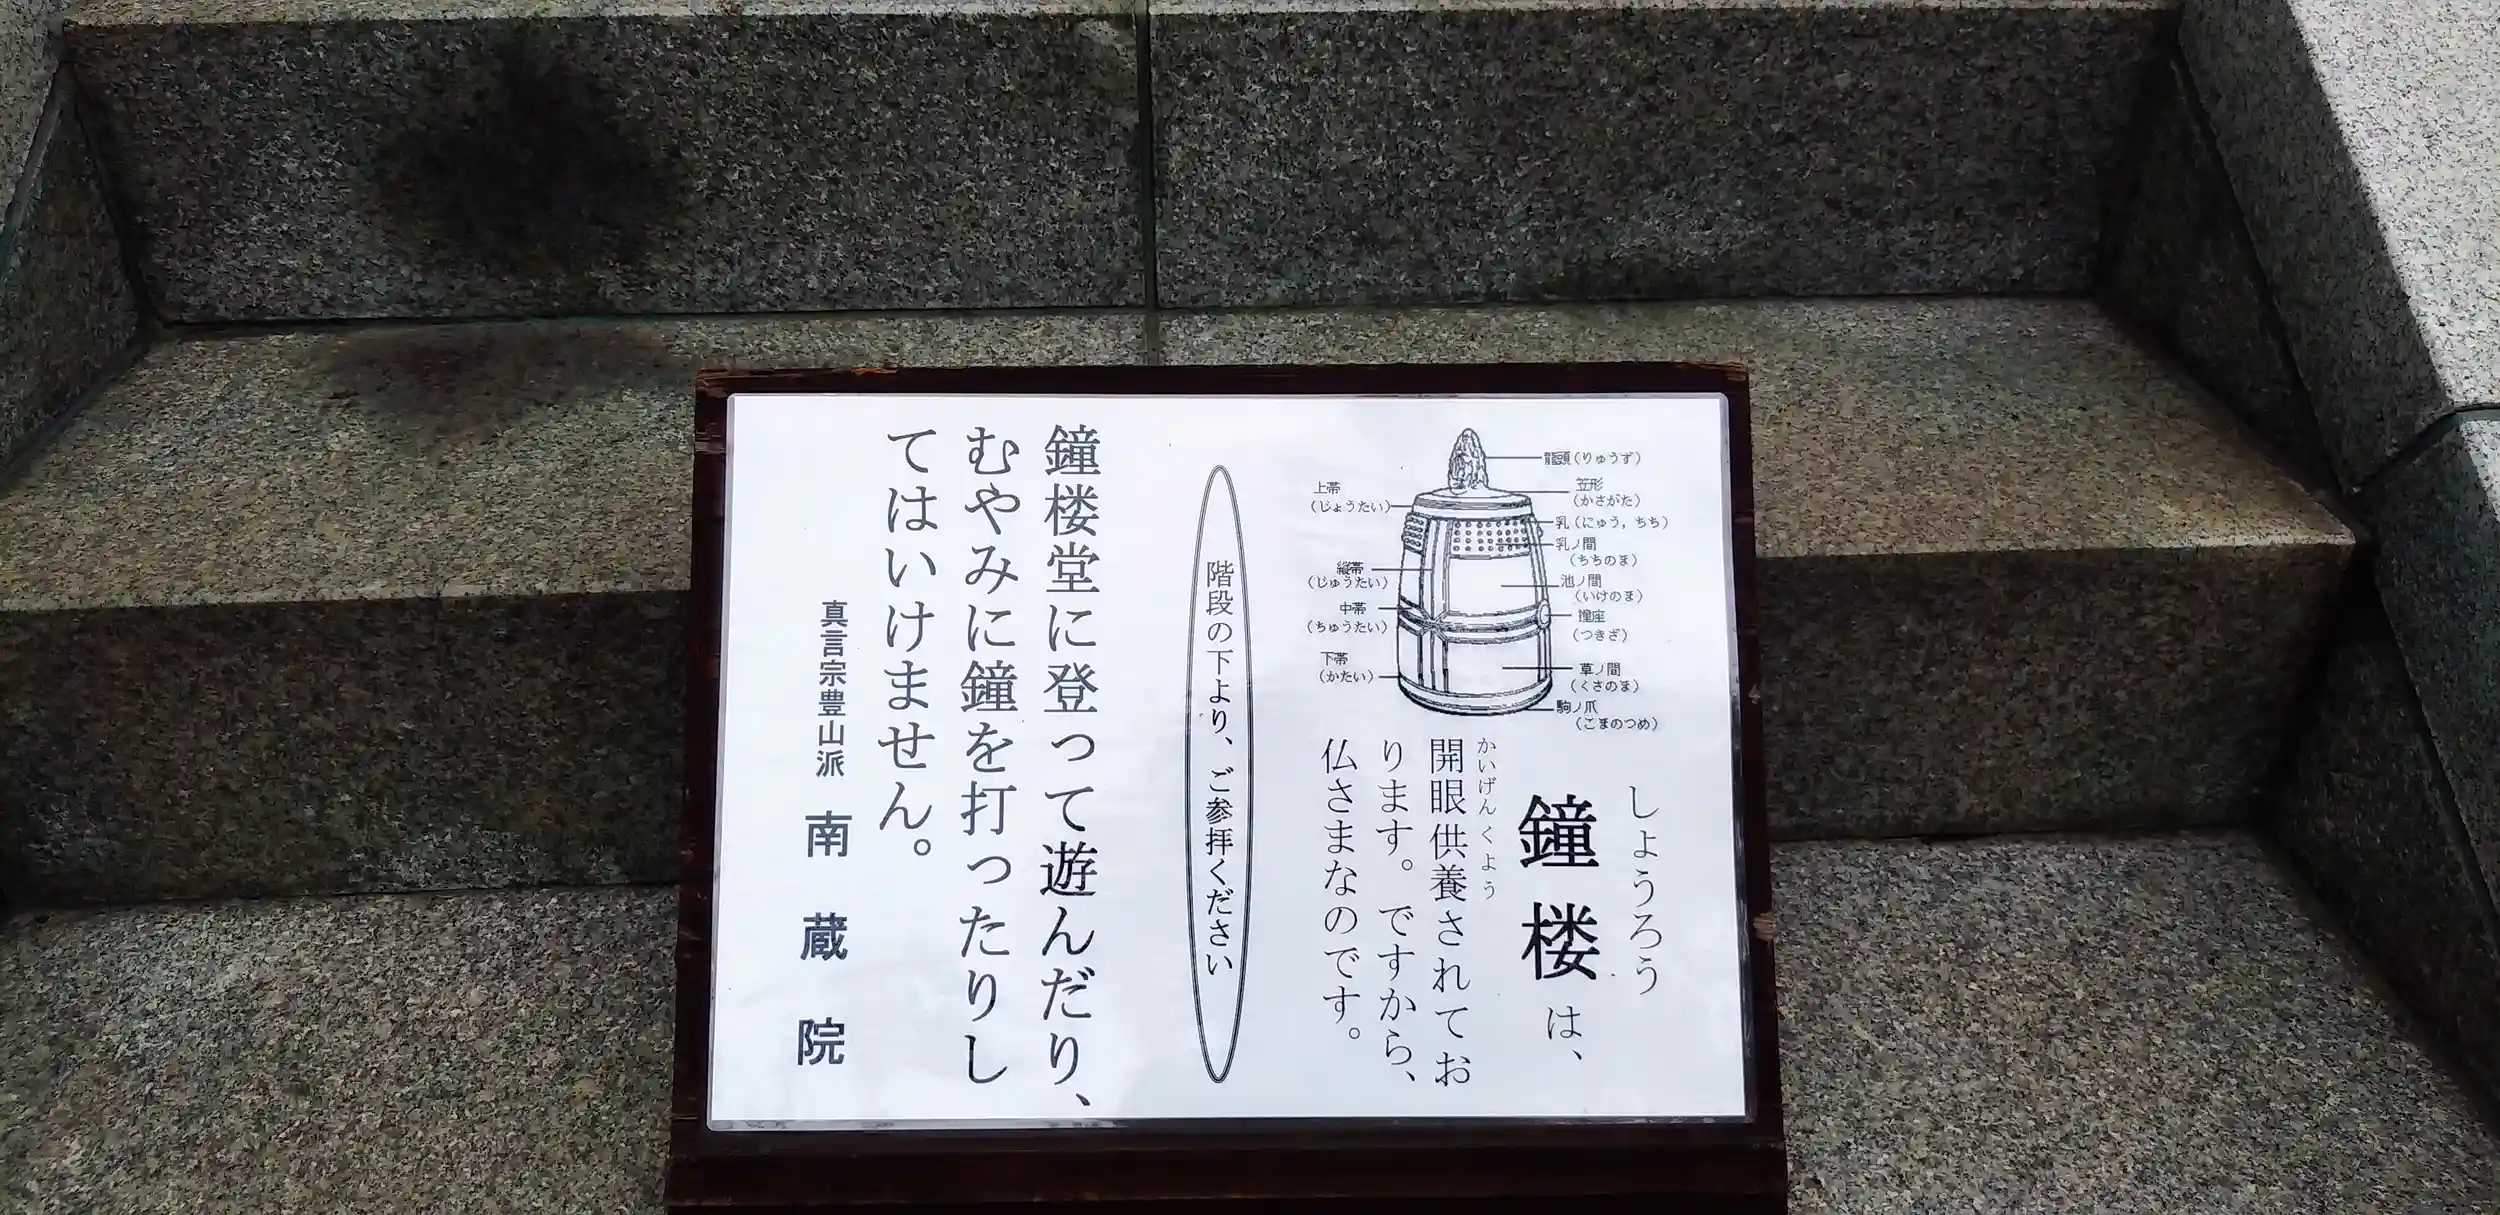 しょうろう
鐘楼は、
かいげんくよう
開眼供養されてお
ります。ですから、
仏さまなのです。
龍頭(りゅうず)
笠形
(かさがた)
乳(にゅう,ちち)
乳ノ間
(ちちのま)
池ノ間
(いけのま)
撞座
(つきざ)
草ノ間
(くさのま)
駒ノ爪
(こまのつめ)
上帯
(じょうたい)
縦帯
(じゅうたい)
中帯
(ちゅうたい)
下帯
(かたい)
階段の下より、ご参拝ください
鐘楼堂に登って遊んだり、
むやみに鐘を打ったりし
てはいけません。
真言宗豊山派 南蔵院